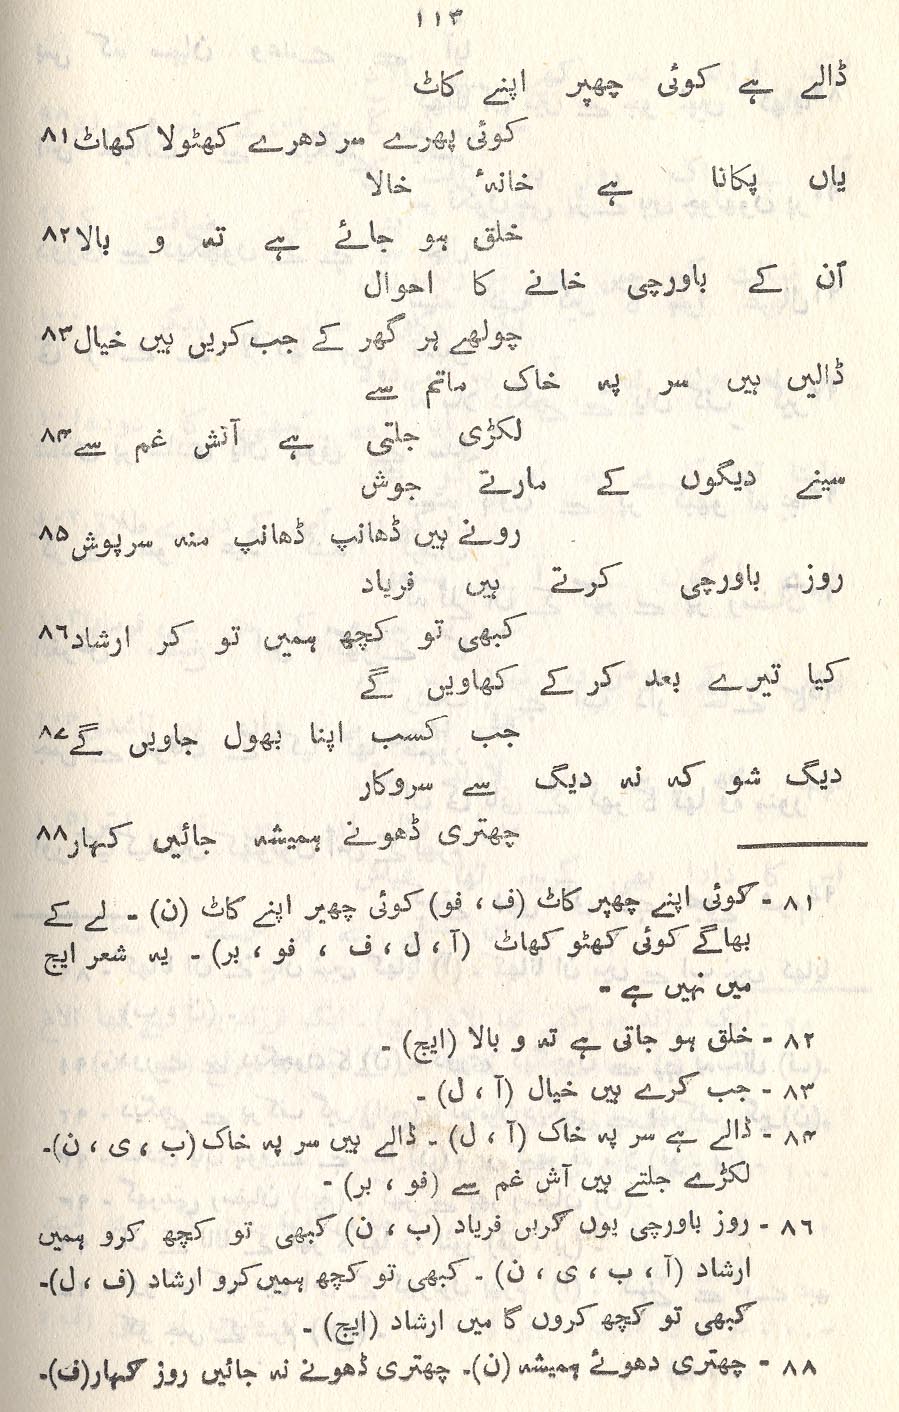 ۱۱۳
ڈالے ہے کوئی چھپر اپنے کاٹ
کوئی پھرے سر دھرے کھٹولا کھاٹ ۸۱
یاں پکانا ہے خانۂ خالا
خلق ہو جائے ہے تہ و بالا ۸۲
آن کے باورچی خانے کا احوال
چولھے ہر گھر کے جب کریں ہیں خیال ۸۳
ڈالیں ہیں سر پہ خاک ماتم سے
لکڑی جلتی ہے آتش غم سے ۸۴
سینے دیگوں کے مارتے جوش
رونے ہیں ڈھانپ ڈھانپ منہ سرپوش ۸۵
روز باورچی کرتے ہیں فریاد
کبھی تو کچھ ہمیں تو کر ارشاد ۸۶
کیا تیرے بعد کر کے کھاویں گے
جب کسب اپنا بھول جاویں گے ۸۷
دیگ شو کہ نہ دیگ سے سروکار
چھتری ڈھونے ہمیشہ جائیں کہار ۸۸
۸۱ - کوئی اپنے چھپر کاٹ (ف ، فو) کوئی چھپر اپنے کاٹ (ن) - لے کے
بھاگے کوئی کھٹو کھاٹ (آ ، ل ، ف ، فو ، بر) - یہ شعر ایچ
میں نہیں ہے -
۸۲ - خلق ہو جاتی ہے تہ و بالا (ایچ) -
۸۳ - جب کرے ہیں خیال (آ ، ل) -
۸۴ - ڈالے ہے سر پہ خاک (آ ، ل) - ڈالے ہیں سر پہ خاک (ب ، ی ، ن)-
لکڑے جلتے ہیں آتش غم سے (فو ، بر) -
۸۶ - روز باورچی یوں کریں فریاد (ب ، ن) کبھی تو کچھ کرو ہمیں
ارشاد (آ ، ب ، ی ، ن) - کبھی تو کچھ ہمیں کرو ارشاد (ف ، ل)-
کبھی تو کچھ کروں گا میں ارشاد (ایچ) -
۸۸ - چھتری دھوئے ہمیشہ (ن)- چھتری ڈھونے نہ جائیں روز کہار (ف)-